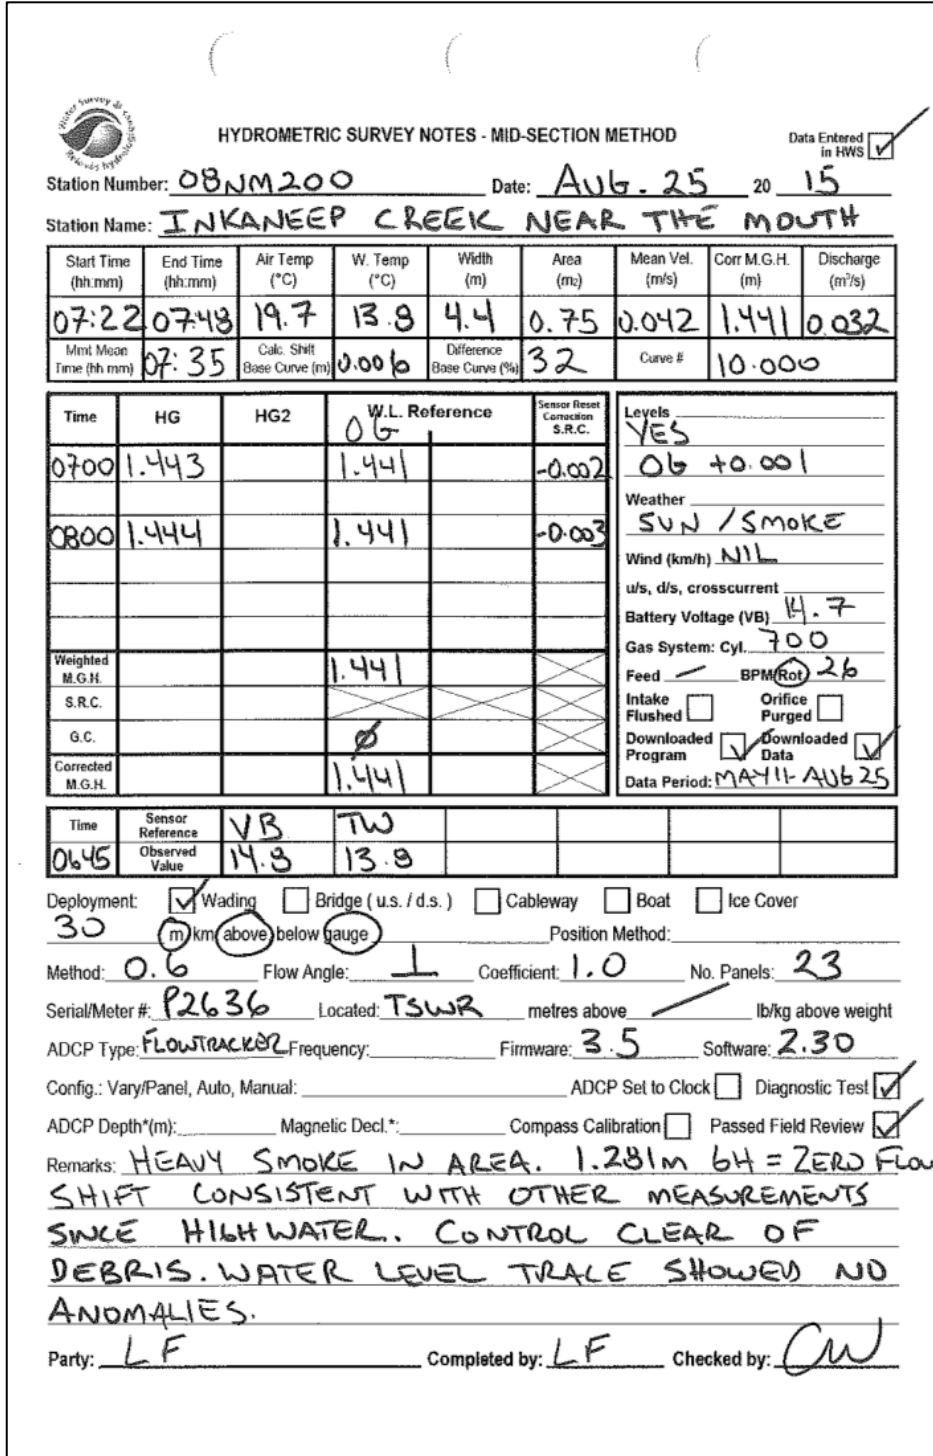 Water Survey of Canada
Relevés hydrologiques
HYDROMETRIC SURVEY NOTES - MID-SECTION METHOD
Data Entered in HWS ✓
Station Number: 08NM200 Date: AUG. 25 20 15
Station Name: INKANEEP CREEK NEAR THE MOUTH
Start Time (hh:mm) End Time (hh:mm) Air Temp (°C) W. Temp (°C) Width (m) Area (m2) Mean Vel. (m/s) Corr M.G.H. (m) Discharge (m³/s)
07:22 07:48 19.7 13.8 4.4 0.75 0.042 1.441 0.032
Mmt Mean Time (hh mm) 07:35 Calc. Shift Base Curve (m) 0.006 Difference Base Curve (%) 32 Curve # 10.000
Time HG HG2 W.L. Reference Sensor Reset Correction S.R.C.
OG
0700 1.443 1.441 -0.002
0800 1.444 1.441 -0.003
Weighted M.G.H. 1.441
S.R.C.
G.C. ø
Corrected M.G.H. 1.441
Levels
YES
OG +0.001
Weather
SUN / SMOKE
Wind (km/h) NIL
u/s, d/s, crosscurrent
Battery Voltage (VB) 14.7
Gas System: Cyl. 700
Feed — BPM/Rot 26
Intake Flushed Orifice Purged
Downloaded Program ✓ Downloaded Data ✓
Data Period: MAY 11- AUG 25
Time Sensor Reference VB TW
0645 Observed Value 14.8 13.8
Deployment: ✓ Wading Bridge ( u.s. / d.s. ) Cableway Boat Ice Cover
30 m km above below gauge Position Method:
Method: 0.6 Flow Angle: ⊥ Coefficient: 1.0 No. Panels: 23
Serial/Meter #: P2636 Located: TSWR metres above — lb/kg above weight
ADCP Type: FLOWTRACKER Frequency: Firmware: 3.5 Software: 2.30
Config.: Vary/Panel, Auto, Manual: ADCP Set to Clock Diagnostic Test ✓
ADCP Depth*(m): Magnetic Decl.*: Compass Calibration Passed Field Review ✓
Remarks: HEAVY SMOKE IN AREA. 1.281m GH = ZERO FLOW
SHIFT CONSISTENT WITH OTHER MEASUREMENTS
SINCE HIGH WATER. CONTROL CLEAR OF
DEBRIS. WATER LEVEL TRACE SHOWED NO
ANOMALIES.
Party: LF Completed by: LF Checked by: CW